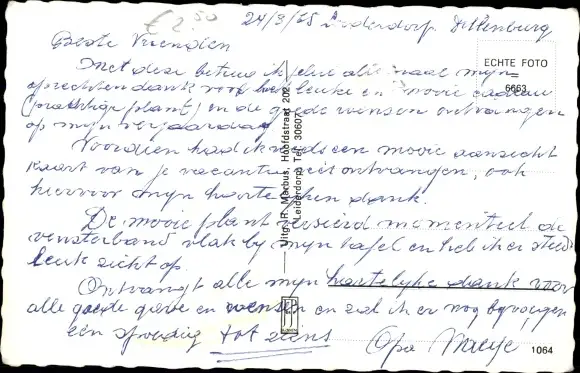 €2.50
24/9/75 Leiderdorp
Beste Vrienden
ECHTE FOTO
6663
Met deze betuig ik jelui alle maal mijn
oprechten dank voor het leuke en mooie cadeau
(prachtige plant) en de goede wensen ontvangen
op mijn verjaardag.
Voordien had ik reeds een mooie aanzicht
kaart van je vacantie reis ontvangen, ook
hiervoor mijn hartelijken dank.
De mooie plant versierd momenteel de
vensterbank vlak bij mijn tafel en heb ik er steeds
leuk zicht op.
Ontvangt alle mijn hartelijke dank voor
alle goede gave en wensen en zal ik er nog bijvoegen
een spoedig tot ziens
Opa
Uitg. R. Marbus, Hoofdstraat 202
Leiderdorp Tel. 30607
1064